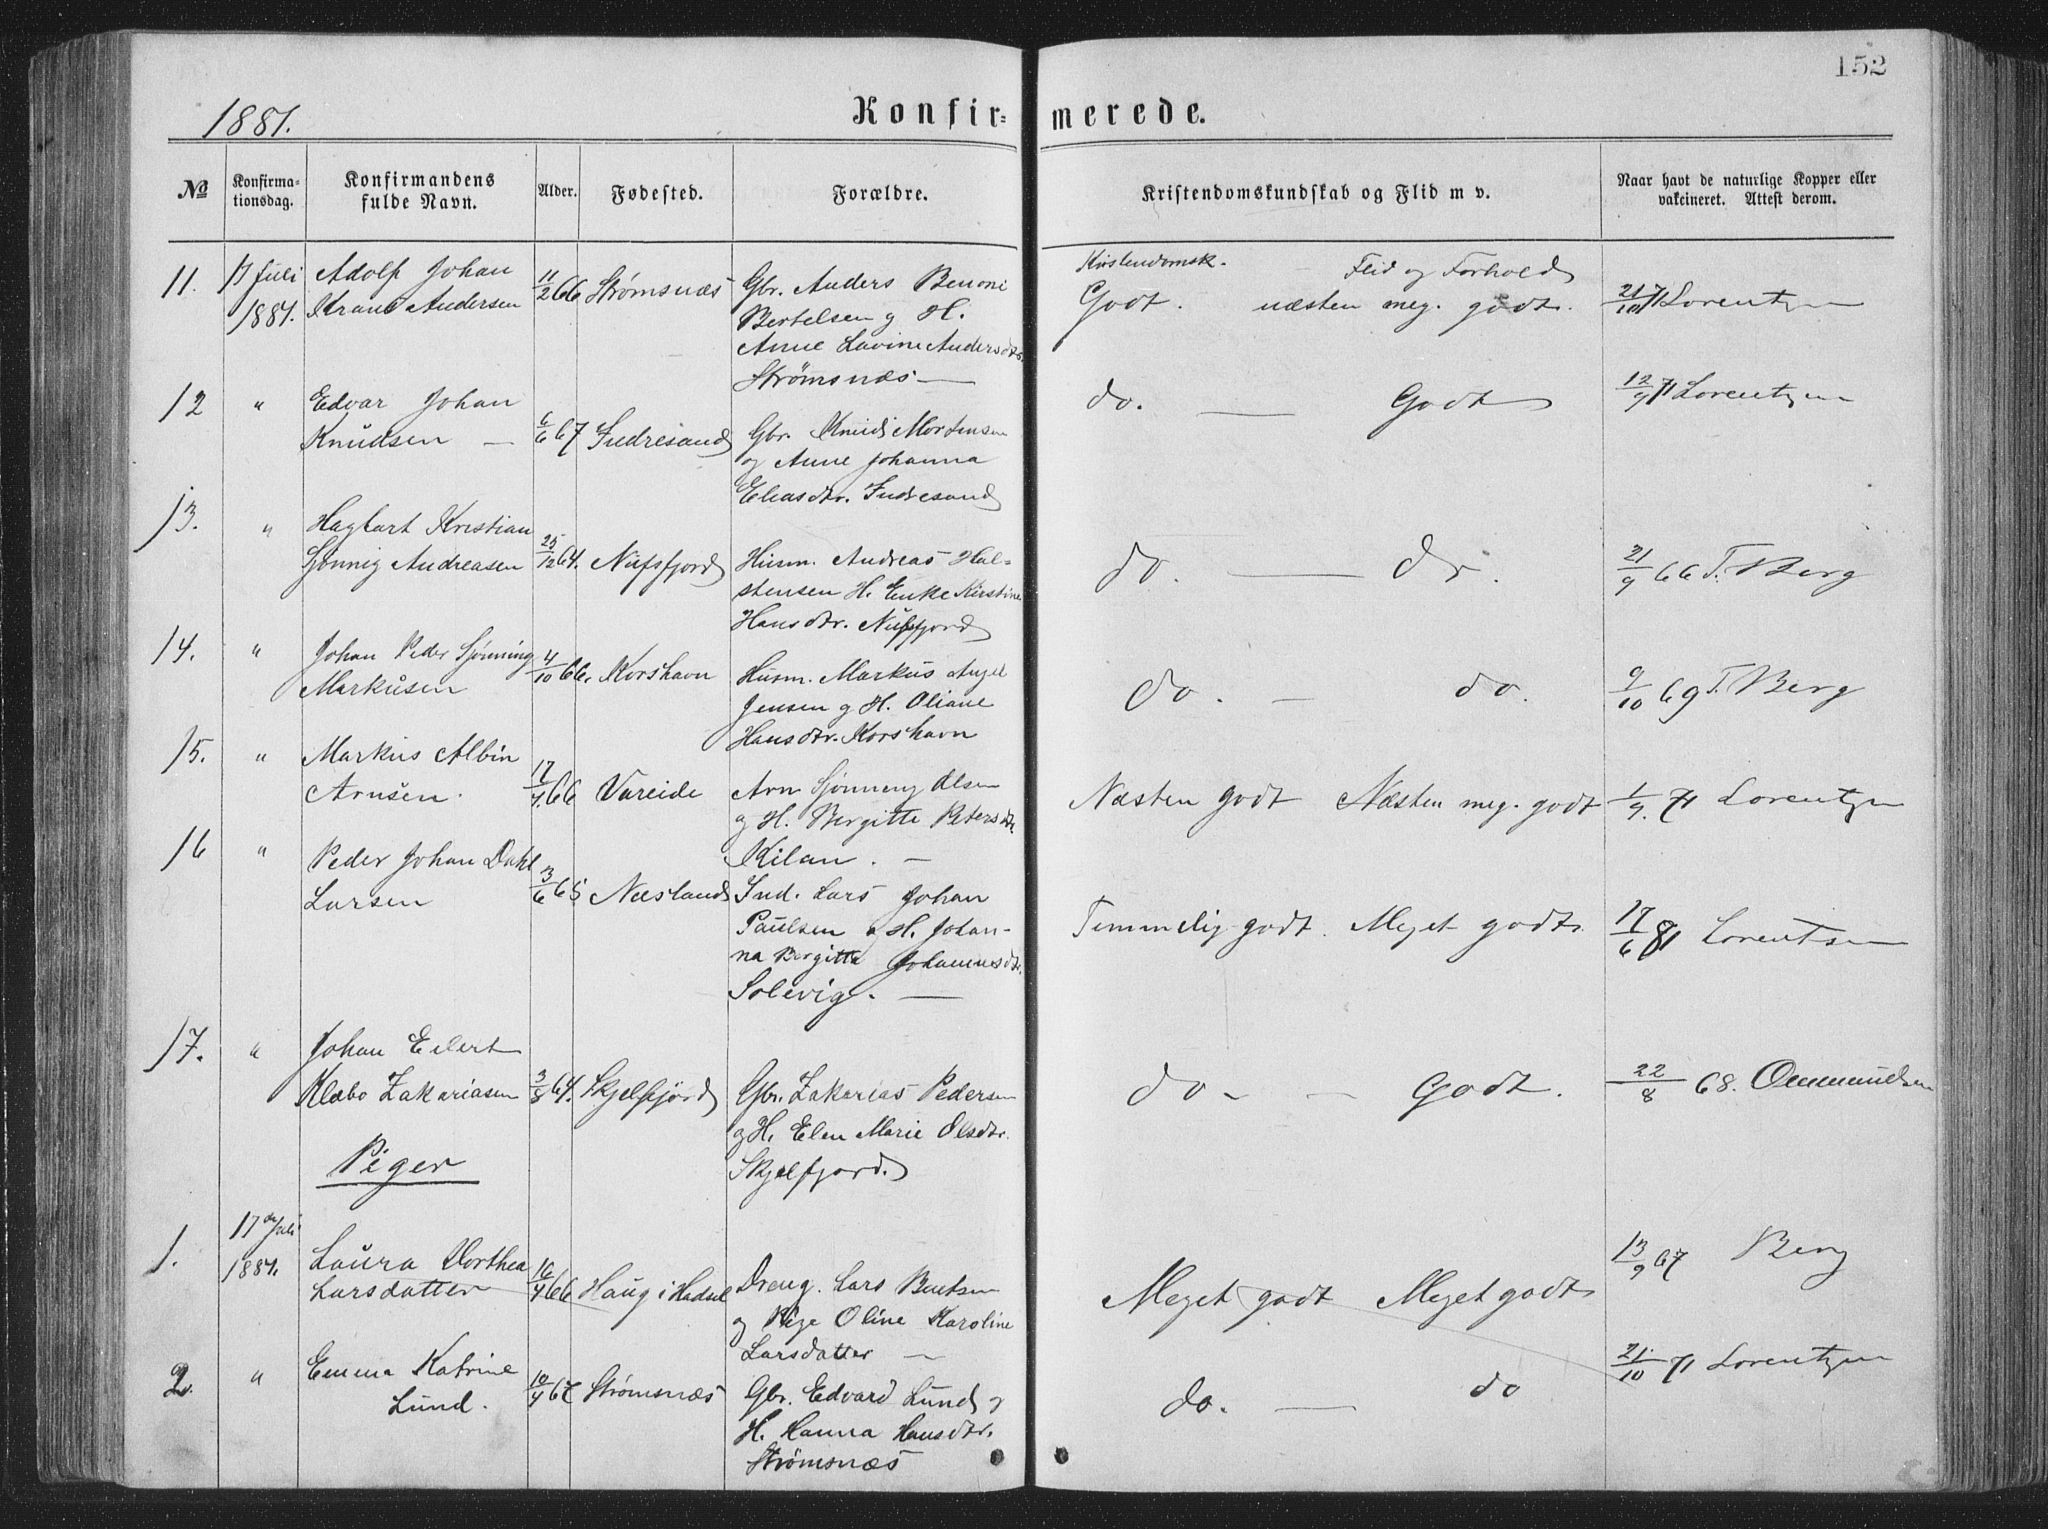 152
1881.
Konfir-merede.
No
Konfirma-
tionsdag.
Konfirmandens
fulde Navn.
Alder.
Fødested.
Forældre.
Kristendomskundskab og Flid m v.
Naar havt de naturlige Kopper eller
vakcineret. Attest derom.
11. 17 Juli Adolf Johan 11/2 66 Strømsnæs Gbr. Anders Benoni
1881. Krane Andersen Bertelsen og H.
Anne Lavine Andersdtr.
Strømsnæs —
Kristendomsk. — Flid og Forhold
Godt. næsten meg. godt. 21/10 71 Lorentzen
12 " Edvar Johan
Knudsen — 6/6 67 Indresand Gbr. Knud Mortensen
og Anne Johanna
Eliasdtr. Indresand
do. — Godt 12/9 71 Lorentzen
13. " Hagbart Kristian
Sjønnig Andreasen 25/12 64. Nufsfjord Husm. Andreas Hal-
stensen H. Enke Kirstine
Hansdtr. Nufsfjord
do. — do. 21/9 66 T. Berg
14. " Johan Peder Sjønning
Markusen 4/10 66. Korshavn Husm. Markus Angel
Jensen og H. Oliane
Hansdtr. Korshavn
do. — do. 9/10 69 T. Berg
15. " Markus Albin
Arnsen. 17/4 66 Vareide Arn Sjønning Olsen
og H. Bergitte Petersdtr.
Kilan. —
Næsten godt Næsten meg. godt 1/9. 71 Lorentzen
16 " Peder Johan Dahl
Larsen 3/6 65 Næsland Ind. Lars Johan
Paulsen og H. Johan-
na Bergitte Johannesdtr.
Solevig. —
Temmelig godt. Meget godt. 17/6 81 Lorentsen
17. " Johan Eilert
Klæbo Zakariasen 3/8 64. Skjelfjord Gbr. Zakarias Pedersen
og H. Elen Marie Olsdtr.
Skjelfjord.
do. — Godt. 22/8 68. Ommundsen
Piger
1. 17de Juli
1881. Laura Dorthea
Larsdatter 16/4 66 Haug i Hadsel Dreng. Lars Bentsen
og Pige Oline Karoline
Larsdatter —
Meget godt Meget godt 13/9 67 Berg
2. " Emma Katrine
Lund. 10/4 67 Strømsnæs Gbr. Edvard Lund og
H. Hanna Hansdtr.
Strømsnæs
do. — do 21/10 71 Lorentzen